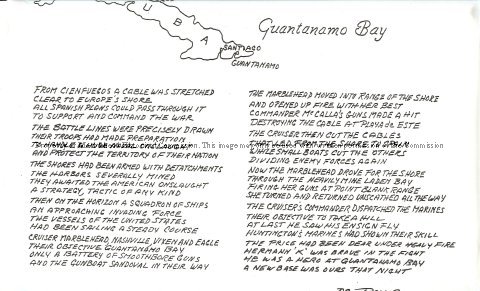 CUBA
SANTIAGO
GUANTANAMO
Guantanamo Bay
FROM CIENFUEGOS A CABLE WAS STRETCHED
CLEAR TO EUROPE'S SHORE
ALL SPANISH PLANS COULD PASS THROUGH IT
TO SUPPORT AND COMMAND THE WAR
THE BATTLE LINES WERE PRECISELY DRAWN
THEIR TROOPS HAD MADE PREPARATION
AND PROTECT THE TERRITORY OF THEIR NATION
THE SHORES HAD BEEN ARMED WITH DETATCHMENTS
THE HARBORS SEVERALLY MINED
THEY AWAITED THE AMERICAN ONSLAUGHT
A STRATEGY, TACTIC OF ANY MIND
THEN ON THE HORIZON A SQUADRON OF SHIPS
AN APPROACHING INVADING FORCE
THE VESSELS OF THE UNITED STATES
HAD BEEN SAILING A STEADY COURSE
CRUISER MARBLEHEAD, NASHVILLE, VIXEN AND EAGLE
THEIR OBJECTIVE GUANTANAMO BAY
ONLY A BATTERY OF SMOOTHBORE GUNS
AND THE GUNBOAT SANDOVAL IN THEIR WAY
THE MARBLEHEAD MOVED INTO RANGE OF THE SHORE
AND OPENED UP FIRE WITH HER BEST
COMMANDER MCCALLA'S GUNS MADE A HIT
DESTROYING THE CABLE AT PLAYA DE ESTE
THE CRUISER THEN CUT THE CABLES
THAT LED FROM THE SHORE TO OPEN
WHILE SMALL BOATS CUT THE OTHERS
DIVIDING ENEMY FORCES AGAIN
NOW THE MARBLEHEAD DROVE FOR THE SHORE
THROUGH THE HEAVILY MINE LADEN BAY
FIRING HER GUNS AT POINT BLANK RANGE
SHE TURNED AND RETURNED UNSCATHED ALL THE WAY
THE CRUISER'S COMMANDER DISPATCHED THE MARINES
THEIR OBJECTIVE TO TAKE A HILL
AT LAST HE SAW HIS ENSIGN FLY
HUNTINGTON'S MARINES HAD SHOWN THEIR SKILL
THE PRICE HAD BEEN DEAR UNDER HEAVY FIRE
HERMANN "K" WAS BRAVE IN THE FIGHT
HE WAS A HERO AT GUANTANAMO BAY
A NEW BASE WAS OURS THAT NIGHT